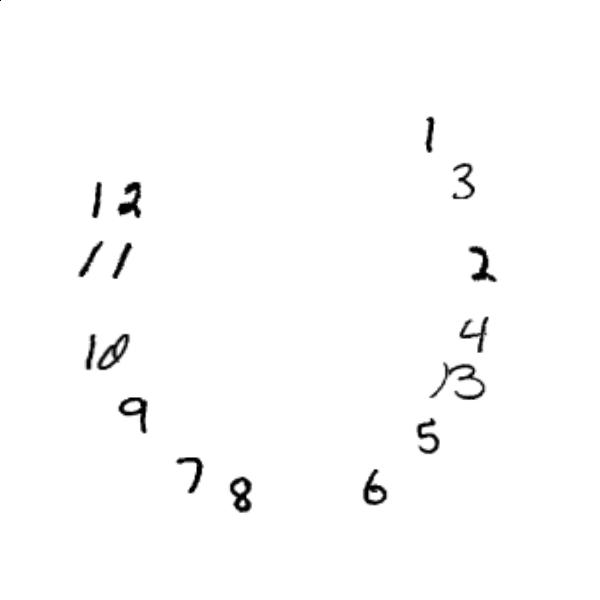 1
3
12
2
11
4
10
13
9
5
7
8
6